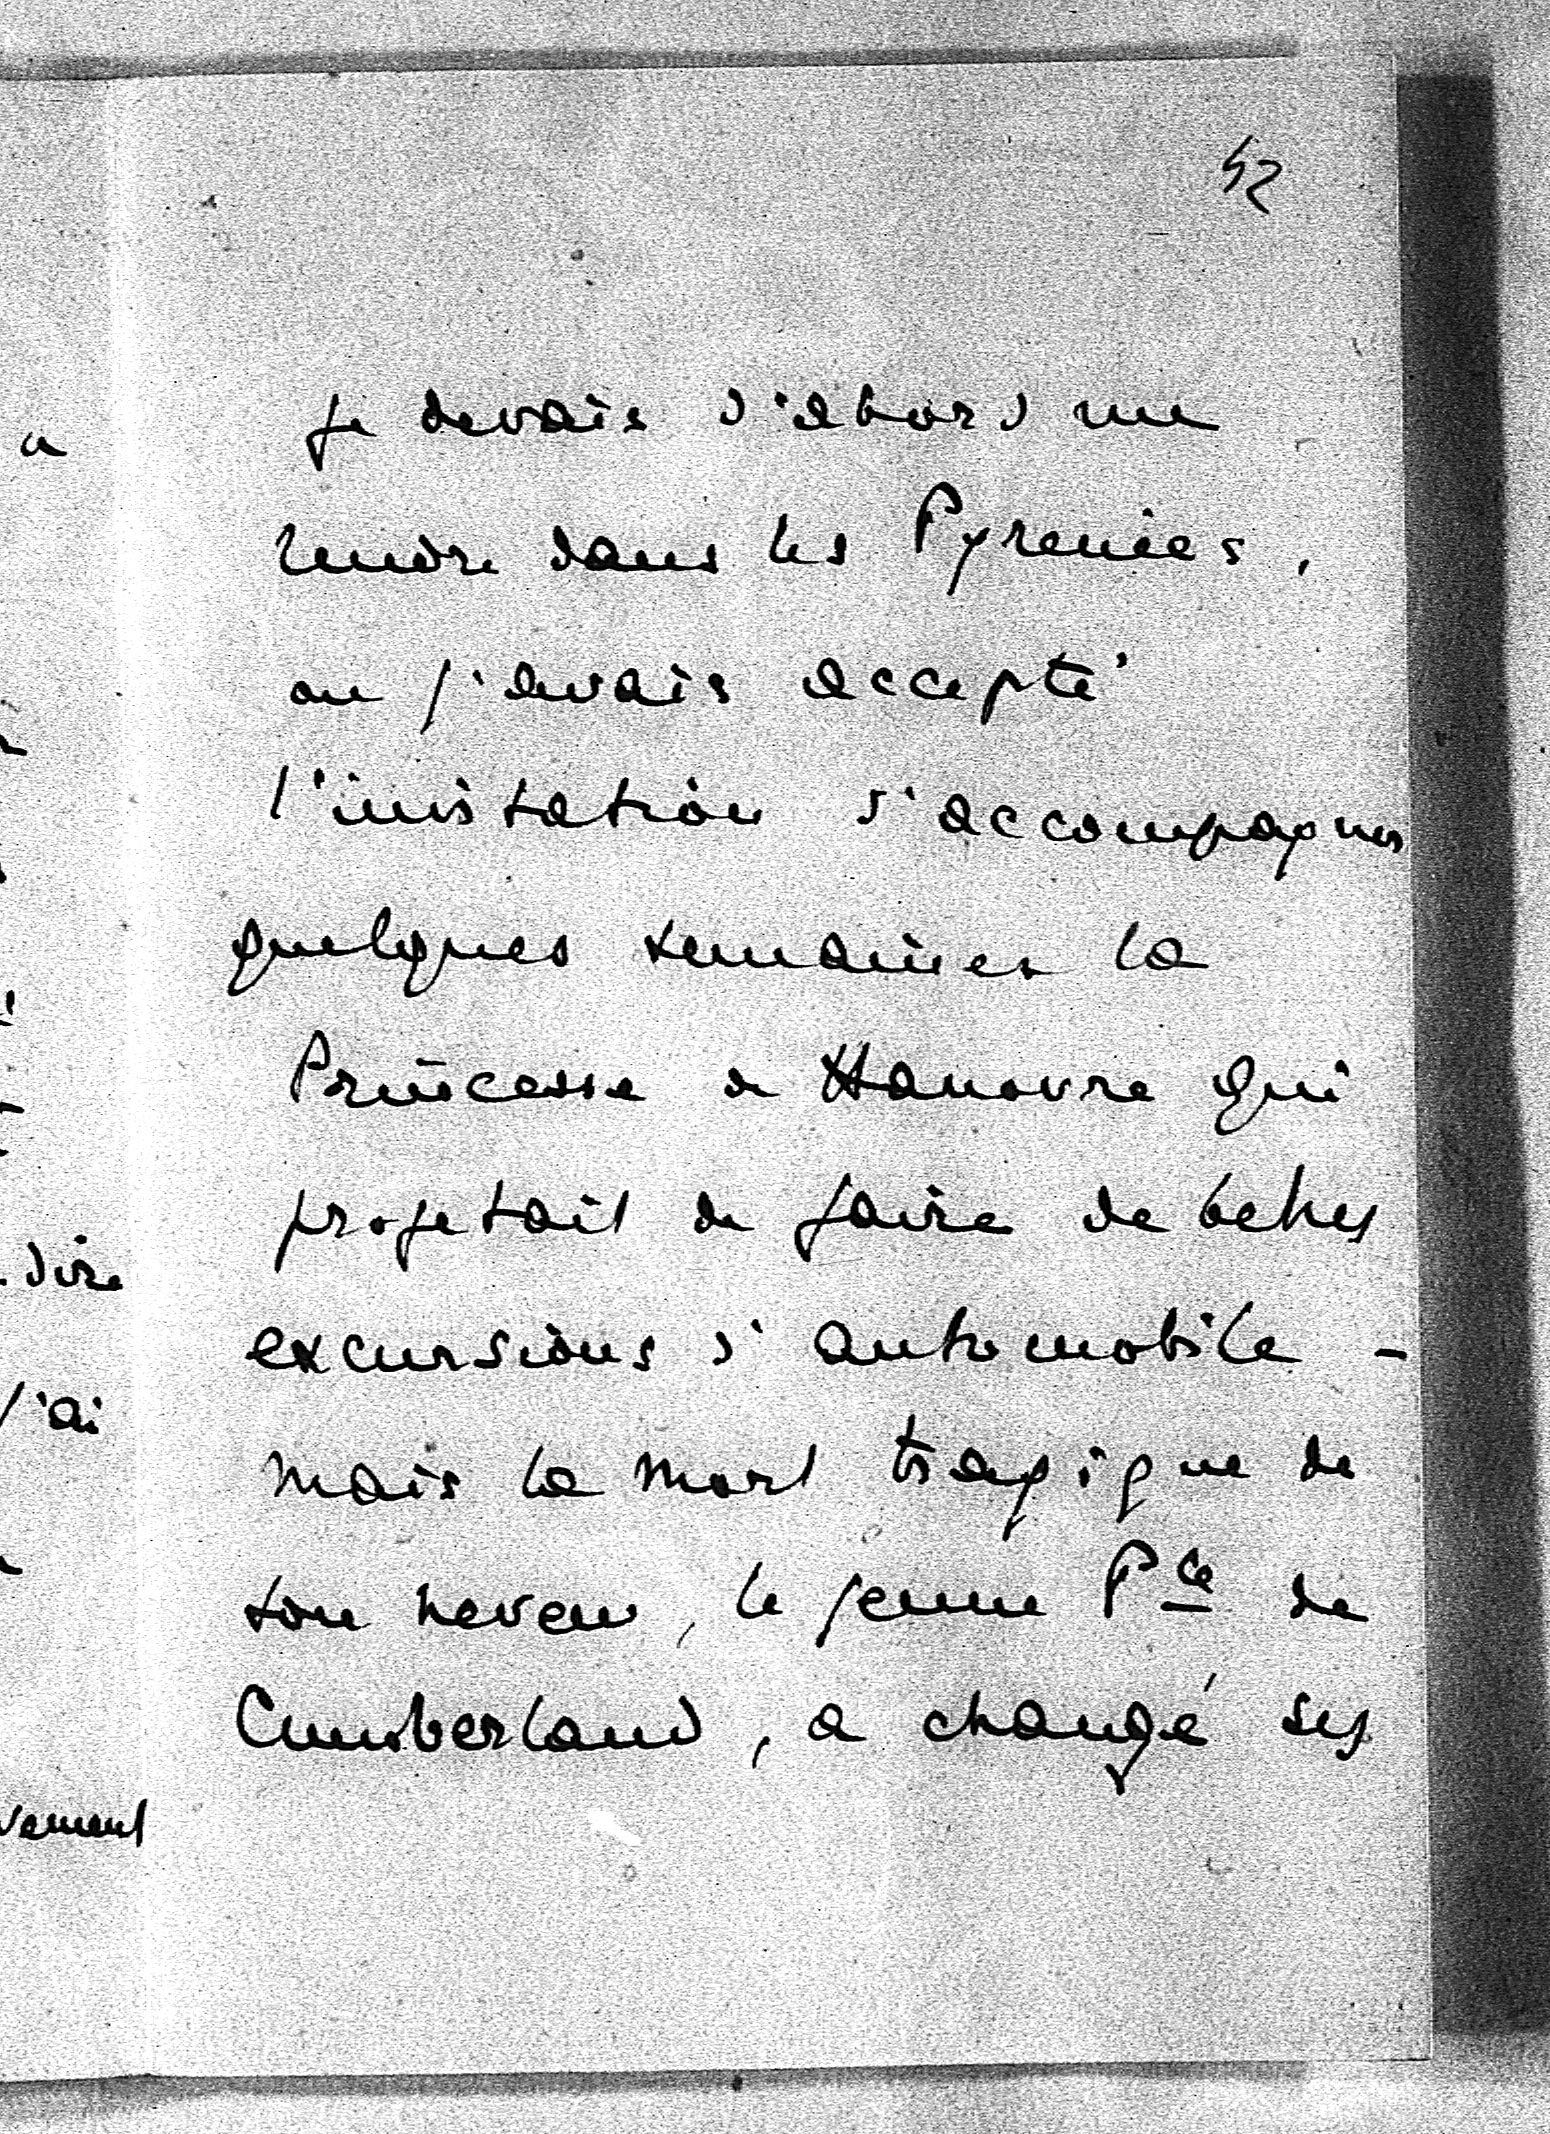 52
je devais d'abord me
rendre dans les Pyrenées,
ou j'avais accepté
l'invitation d'accompagner
quelques semaines la
Princesse de Hanovre qui
projetait de faire de belles
excursions d'automobile -
mais la mort tragique de
son neveu, le jeune Pce de
Cumberland, a changé ses
a
dire
j'ai
vement